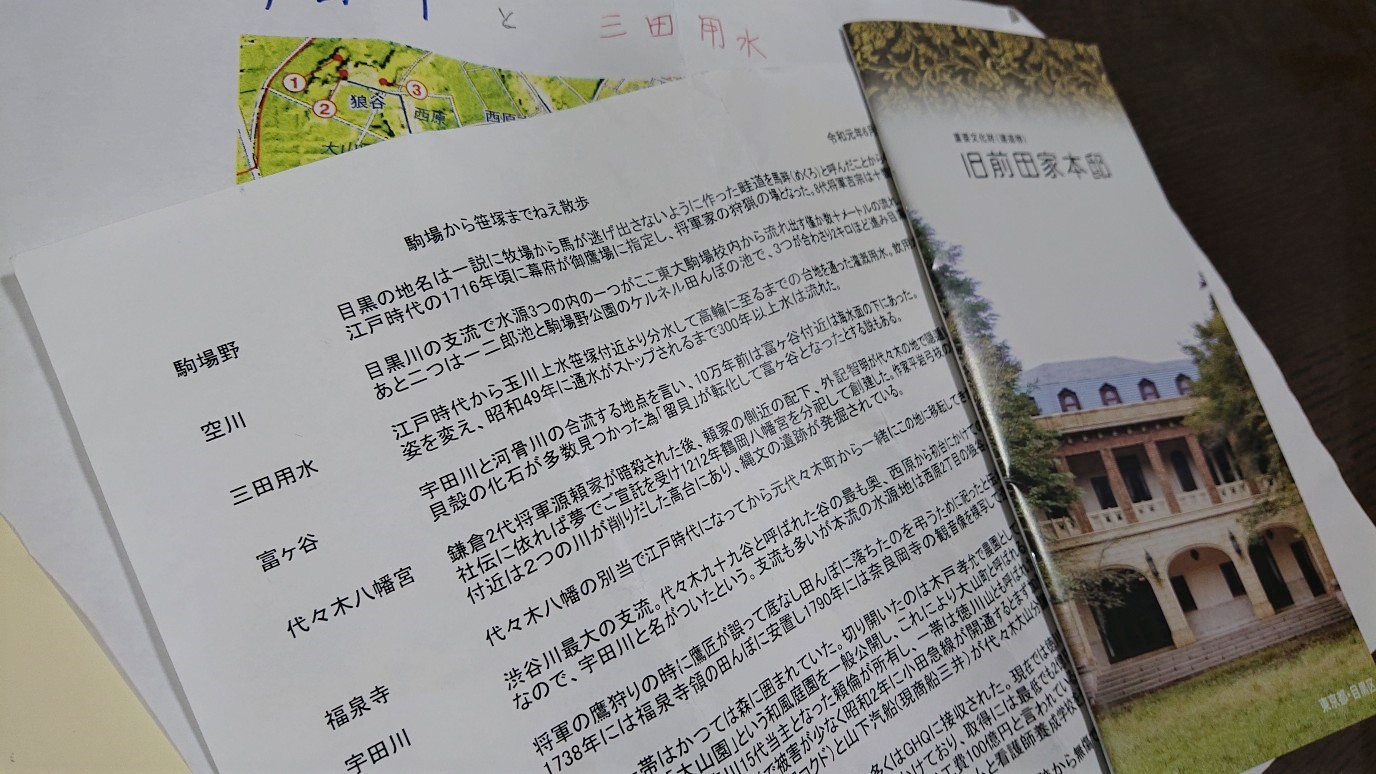 と 三田用水
①
②
③
狼谷
西原
西原
大山
令和元年6月
駒場から笹塚までねえ散歩
駒場野
目黒の地名は一説に牧場から馬が逃げ出さないように作った畦道を馬畔(めくろ)と呼んだことから
江戸時代の1716年頃に幕府が御鷹場に指定し、将軍家の狩猟の場となった。8代将軍吉宗は十
空川
目黒川の支流で水源3つの内の一つがここ東大駒場校内から流れ出す僅か数十メートルの流れ
あと二つは一二郎池と駒場野公園のケルネル田んぼの池で、3つが合わさり2キロほど進み目
三田用水
江戸時代から玉川上水笹塚付近より分水して高輪に至るまでの台地を通った灌漑用水。牧用
姿を変え、昭和49年に通水がストップされるまで300年以上水は流れた。
富ヶ谷
宇田川と河骨川の合流する地点を言い、10万年前は富ヶ谷付近は海水面の下にあった。
貝殻の化石が多数見つかった為「留貝」が転化して富ヶ谷となったとする説もある。
代々木八幡宮
鎌倉2代将軍源頼家が暗殺された後、頼家の側近の配下、外記智明が代々木の地で隠遁
社伝に依れば夢でご宣託を受け1212年鶴岡八幡宮を分祀して創建した。作家平岩弓枝の
付近は2つの川が削りだした高台にあり、縄文の遺跡が発掘されている。
福泉寺
代々木八幡の別当で江戸時代になってから元代々木町から一緒にこの地に移転してき
宇田川
渋谷川最大の支流。代々木九十九谷と呼ばれた谷の最も奥、西原から初台にかけての
なので、宇田川と名がついたという。支流も多いが本流の水源地は西原2丁目の
将軍の鷹狩りの時に鷹匠が誤って底なし田んぼに落ちたのを弔うために祀ったと
1738年には福泉寺領の田んぼに安置し1790年には奈良岡寺の観音像を模写して
帯はかつては森に囲まれていた。切り開いたのは木戸孝允で農園とし
大山園」という和風庭園を一般公開し、これにより大山町と呼ばれ
川15代当主となった頼倫が所有し、一帯は徳川山とも呼ば
で被害が少なく昭和2年に小田急線が開通するとます
コクド)と山下汽船(現商船三井)が代々木大山分
多くはGHQに接収された。現在では徳
かけており、取得には最低でも2
工費100億円と言われてい
と看護師養成学校
から無
重要文化財(建造物)
旧前田家本邸
東京都・目黒区